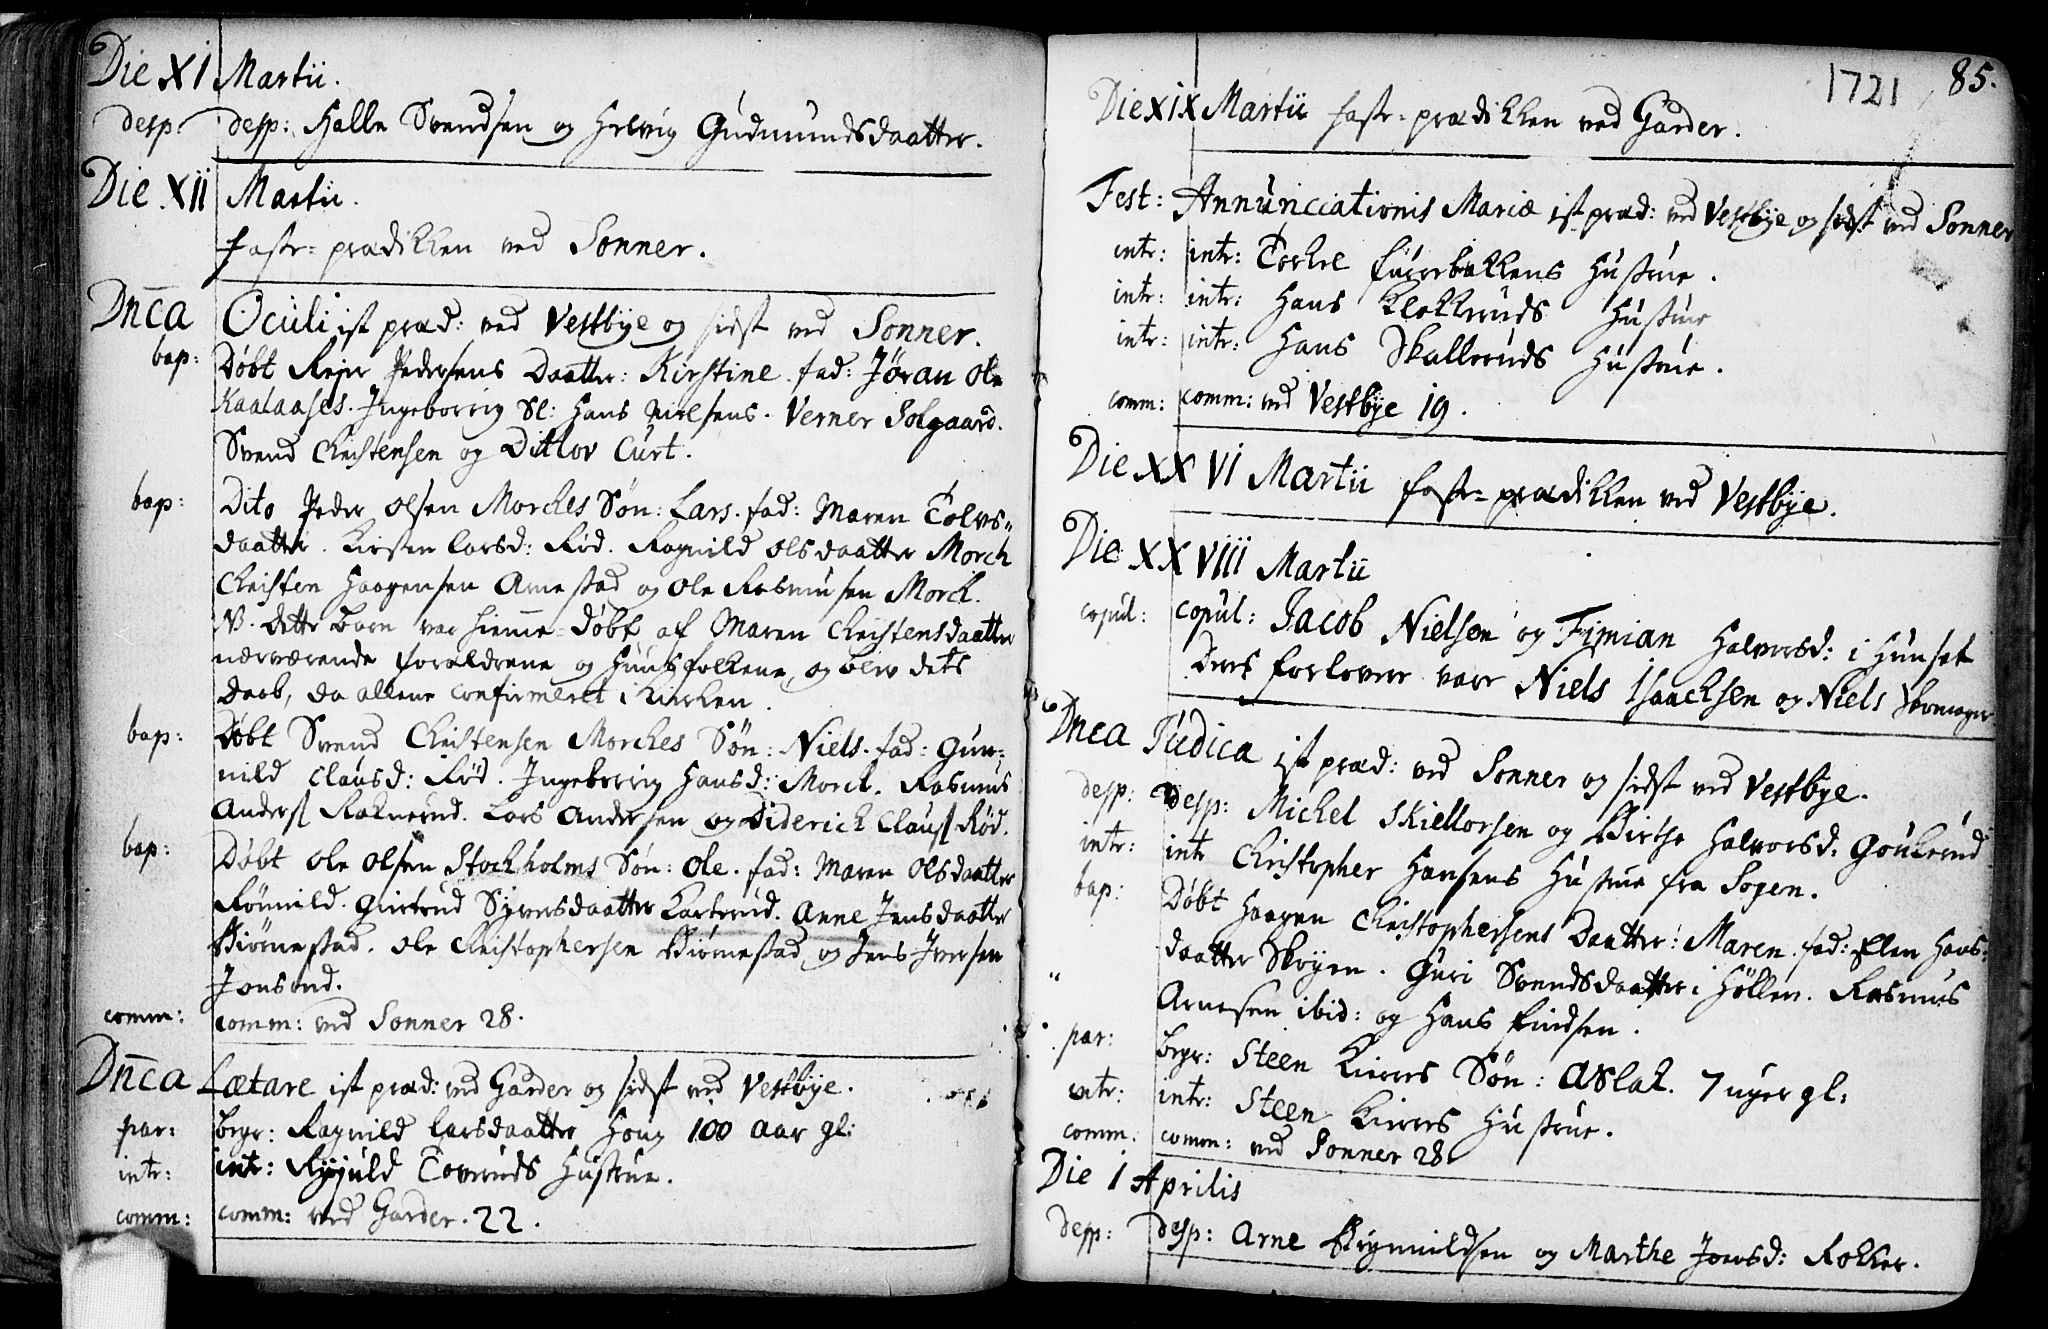 Die XI Martii.
desp: desp: Halle Svendsen og Helvig Gudmundsdaatter.
Die XII Martii.
faste-prædikken ved Sonner.
Dnca Oculi ist præd: ved Vestbye og sidst ved Sonner.
bap: Døbt Rejer Pedersens Daatter: Kirstine. fad: Jøran Ole
Kaalaases. Ingeborrig Sl: Hans Nielsens. Verner Solgaard.
Svend Christensen og Ditlov Curt.
bap: Dito Peder Olsen Morches Søn: Lars. fad: Maren Tolvs=
daatter. Kirsten Larsd: Rød. Ragnild Olsdaatter Morch
Christen Haagensen Arnestad og Ole Rasmusen Morch.
NB. Dette Barn var hiemme-døbt af Maren Christensdaatter
nærværende foreldrene og Huusfolkene, og blev dets
Daab, da allene confirmeret i Kirken.
bap: Døbt Svend Christensen Morches Søn: Niels. fad: Gun-
nild Clausd: Rød. Ingeborrig Hansd: Morch. Rasmus
Anders Raknerud. Lars Andersen og Diderich Claus Rød.
bap: Døbt Ole Olsen Stockholms Søn: Ole. fad: Maren Olsdaatter
Rønnild. Giertrud Syversdaatter Karterud. Anne Jensdaatter
Biørnestad. Ole Christophersen Biørnestad og Jens Iversen
Jonsrud.
comm: comm: ved Sonner 28.
Dnca Lætare ist præd: ved Garder og sidst ved Vestbye.
par: begr: Ragnild Larsdaatter Houg 100 Aar gl:
intr: intr: Rejuld Toveruds Hustrue.
comm: comm: ved Garder. 22.
1721 85.
Die XIX Martii faste-prædikken ved Garder.
Fest: Annunciationis Mariæ ist præd: ved Vestbye og sidst ved Sonner
intr: intr: Torkel furrebakkens Hustrue.
intr: intr: Hans Klokkeruds Hustrue
intr: intr: Hans Skalleruds Hustrue.
comm: comm: ved Vestbye 19.
Die XXVI Martii faste-prædikken ved Vestbye.
Die XXVIII Martii
copul: copul: Jacob Nielsen og Fimian Halvorsd: i Hunset
Deres forlovere vare Niels Isaachsen og Niels Skomager
Dnca Judica ist præd: ved Sonner og sidst ved Vestbye.
desp: desp: Michel Skiellorsen og Birthe Halvorsd: Goukerud
intr: intr Christopher Hansens Hustrue fra Sogen.
bap: Døbt Haagen Christophersens Daatter: Maren. fad: Elen Hans:
daatter Skøyen. Guri Svendsdaatter i Høllen. Rasmus
Arnesen ibid: og Hans Findsen.
par: begr: Steen Kierres Søn: Aslak. 7 uger gl:
intr: intr: Steen Kierres Hustrue.
comm: comm: ved Sonner 28
Die 1 Aprilis
desp: desp: Arne Brynnildsen og Marthe Joensd: Rokker.